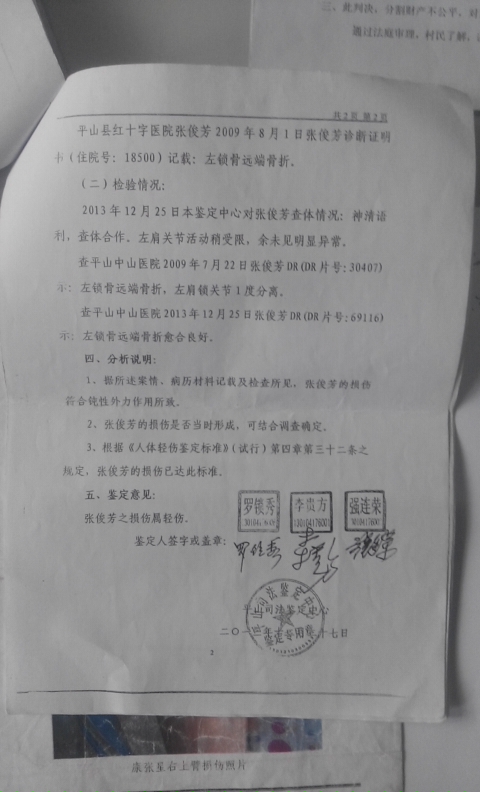 三、此判决，分割财产不公平，对
通过法庭审理，村民了解，
共2页 第2页
平山县红十字医院张俊芳 2009 年 8 月 1 日张俊芳诊断证明
卡（住院号：18500）记载：左锁骨远端骨折。
（二）检验情况：
2013 年 12 月 25 日本鉴定中心对张俊芳查体情况：神清语
利，查体合作、左肩关节活动稍受限，余未见明显异常。
查平山中山医院 2009 年 7 月 22 日张俊芳 DR(DR 片号：30407)
示：左锁骨远端骨折，左肩锁关节 1 度分离。
查平山中山医院 2013 年 12 月 25 日张俊芳 DR(DR 片号：69116)
示：左锁骨远端骨折愈合良好。
四、分析说明：
1、据所述案情、病历材料记载及检查所见，张俊芳的损伤
符合钝性外力作用所致。
2、张俊芳的损伤是否当时形成，可结合调查确定。
3、根据《人体轻伤鉴定标准》（试行）第四章第三十二条之
规定，张俊芳的损伤已达此标准。
五、鉴定意见：
张俊芳之损伤属轻伤。
罗银秀 李贵方 强连荣
鉴定人签字或盖章：
司法鉴定中心
二〇一 年 十七日
鉴定专用章
2
张星右上臂损伤照片